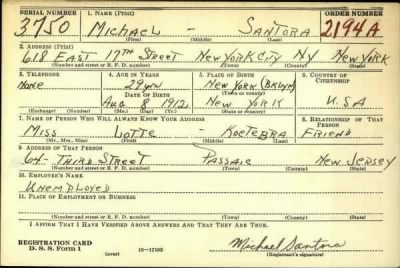 SERIAL NUMBER 1. NAME (Print) ORDER NUMBER
3750 MICHAEL - SANTORA 2194A
(First) (Middle) (Last)
2. ADDRESS (Print)
618 EAST 17TH STREET NEW YORK CITY NY NEW YORK
(Number and street or R. F. D. number) (Town) (County) (State)
3. TELEPHONE 4. AGE IN YEARS 5. PLACE OF BIRTH 6. COUNTRY OF CITIZENSHIP
NONE 29 yrs NEW YORK (BKLYN)
DATE OF BIRTH (Town or county)
AUG 8 1912 NEW YORK U.S.A
(Exchange) (Number) (Mo.) (Day) (Yr.) (State or country)
7. NAME OF PERSON WHO WILL ALWAYS KNOW YOUR ADDRESS 8. RELATIONSHIP OF THAT PERSON
MISS LOTTE - KOETEBRA FRIEND
(Mr., Mrs., Miss) (First) (Middle) (Last)
9. ADDRESS OF THAT PERSON
64 - THIRD STREET PASSAIC NEW JERSEY
(Number and street or R. F. D. number) (Town) (County) (State)
10. EMPLOYER'S NAME
UNEMPLOYED
11. PLACE OF EMPLOYMENT OR BUSINESS
(Number and street or R. F. D. number) (Town) (County) (State)
I AFFIRM THAT I HAVE VERIFIED ABOVE ANSWERS AND THAT THEY ARE TRUE.
REGISTRATION CARD
D. S. S. Form 1 (over) 16-17105 Michael Santora
(Registrant's signature)